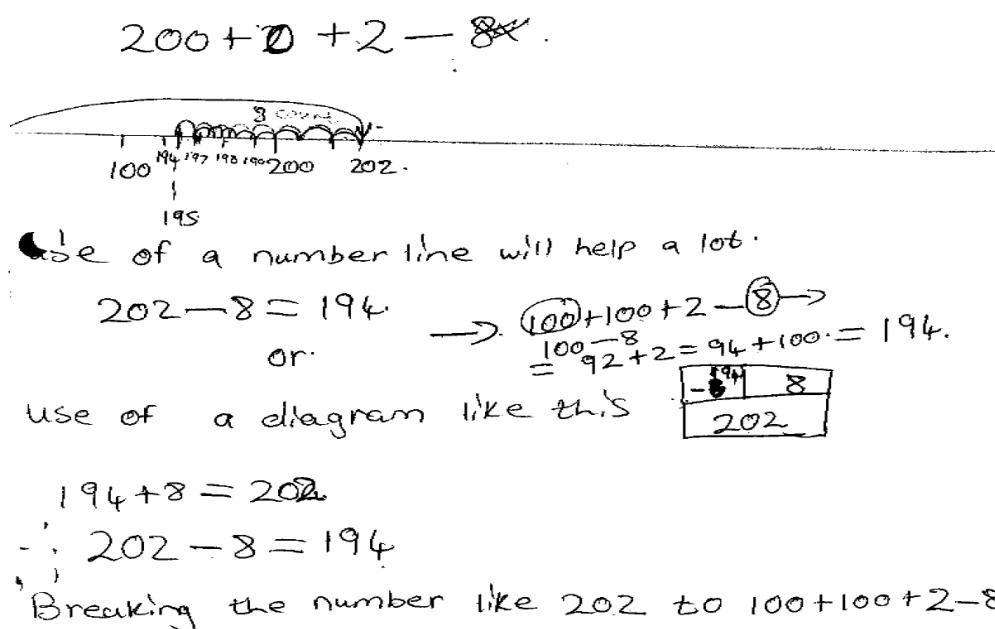 200 + 0 + 2 — 8
8 count
100 194 197 198 199 200 202.
195
Use of a number line will help a lot.
202 — 8 = 194.
→ 100 + 100 + 2 — 8 →
100 — 8
= 92 + 2 = 94 + 100. = 194.
or.
use of a diagram like this
194 8
202
194 + 8 = 202
∴ 202 — 8 = 194
Breaking the number like 202 to 100 + 100 + 2 — 8